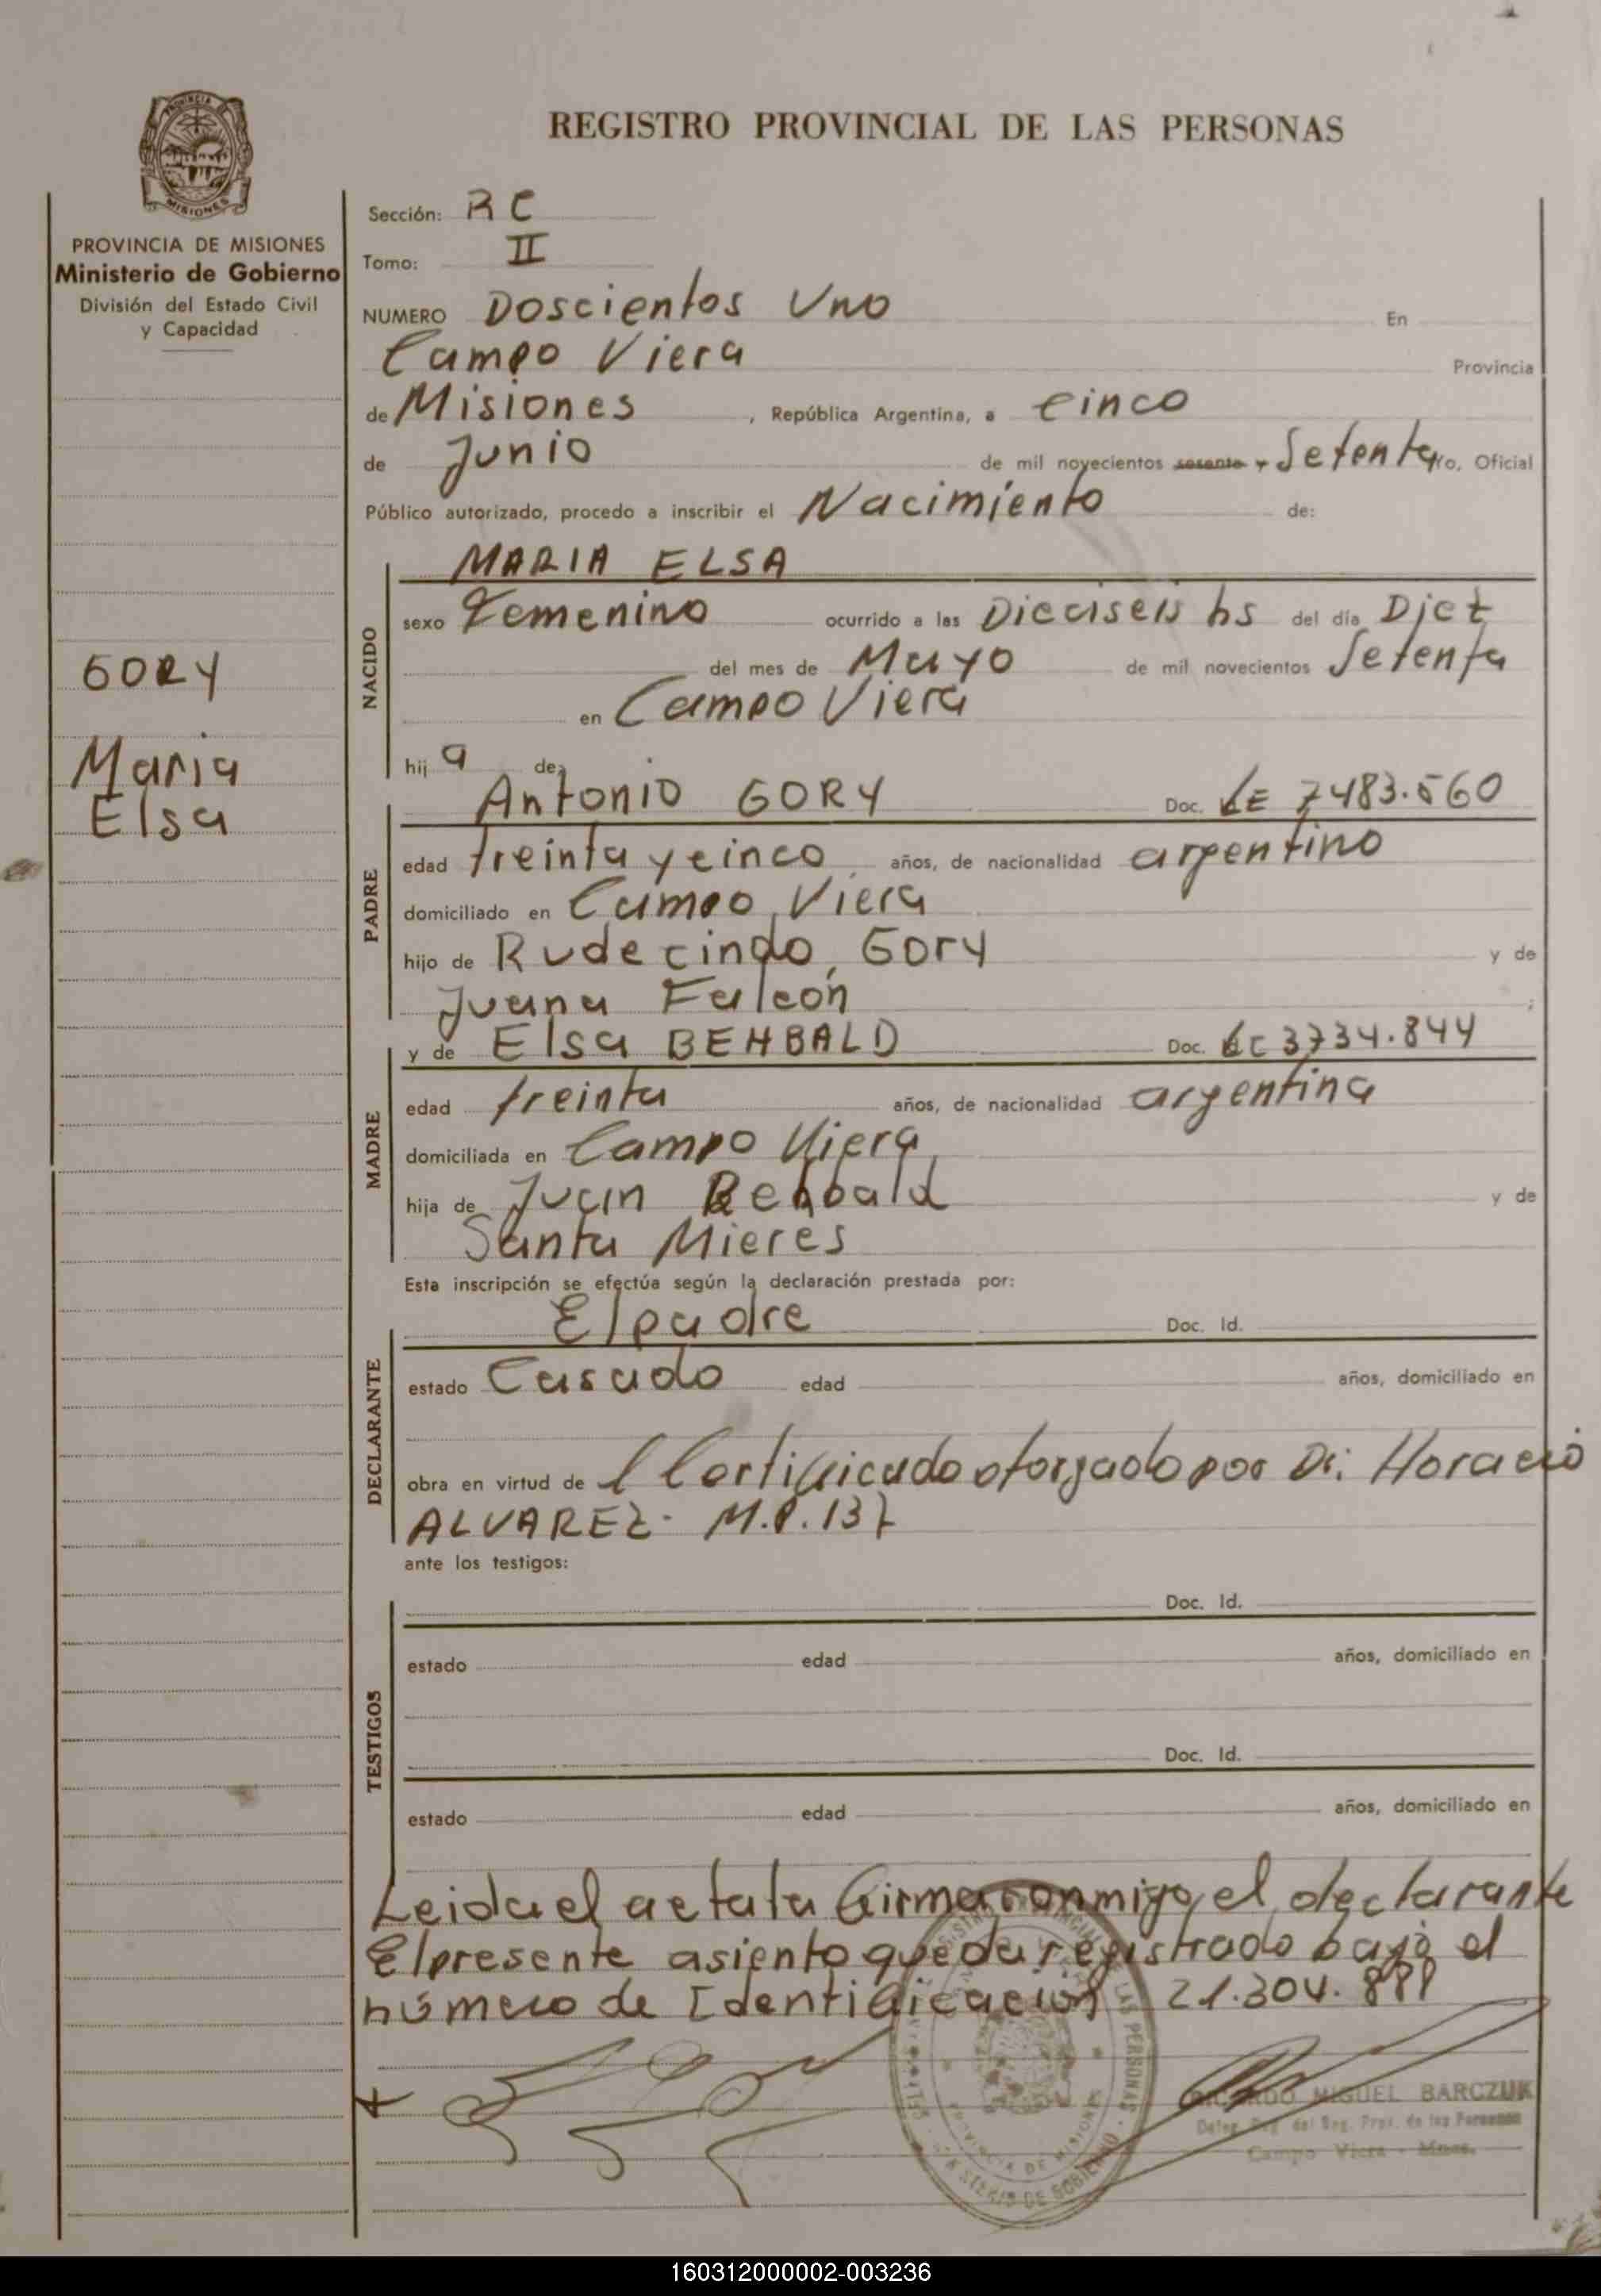 REGISTRO PROVINCIAL DE LAS PERSONAS
MISIONES
PROVINCIA DE MISIONES
Ministerio de Gobierno
División del Estado Civil
y Capacidad
GORY
Maria
Elsa
Sección: RC
Tomo: II
NUMERO Doscientos Uno En
Campo Viera Provincia
de Misiones, República Argentina, a cinco
de Junio de mil novecientos sesenta y Setenta ro, Oficial
Público autorizado, procedo a inscribir el Nacimiento de:
NACIDO
MARIA ELSA
sexo Femenino ocurrido a las Dieciseis hs del día Diez
del mes de Mayo de mil novecientos Setenta
en Campo Viera
hij a de:
PADRE
Antonio GORY Doc. LE 7483.560
edad treinta y cinco años, de nacionalidad argentino
domiciliado en Campo Viera
hijo de Rudecindo Gory y de
Juana Falcón ;
MADRE
y de Elsa BEHBALD Doc. LC 3734.844
edad treinta años, de nacionalidad argentina
domiciliada en Campo Viera
hija de Juan Behbald y de
Santa Mieres
Esta inscripción se efectúa según la declaración prestada por:
DECLARANTE
El padre Doc. Id.
estado Casado edad años, domiciliado en
obra en virtud de l Certificado otorgado por Dr. Horacio
ALVAREZ. M.P. 137
ante los testigos:
TESTIGOS
Doc. Id.
estado edad años, domiciliado en
Doc. Id.
estado edad años, domiciliado en
Leida el acta la firma conmigo el declarante
El presente asiento queda registrado bajo el
número de Identificación 21.304.881
RICARDO MIGUEL BARCZUK
del Reg. Prov. de las Personas
Campo Viera - Mnes.
160312000002-003236